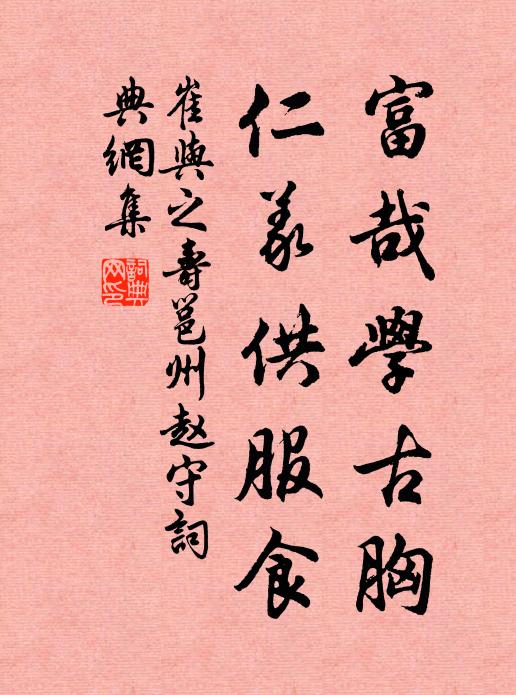 富哉學古胸
仁義供服食
崔與之壽邕州赵守詞
典網集
詞典
网印